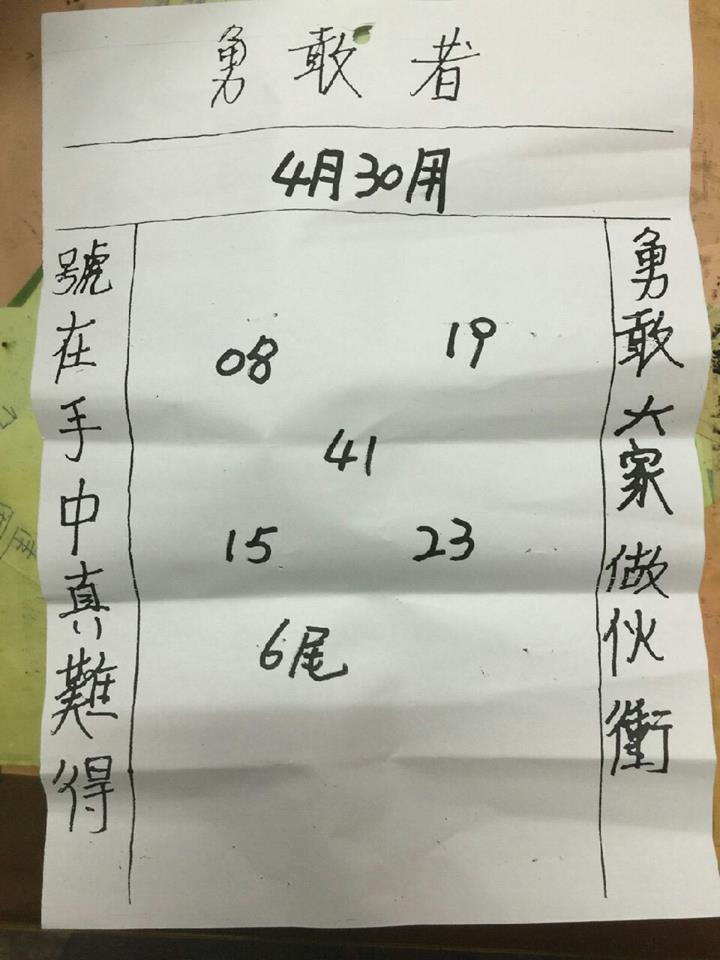 勇敢者
4月30用
勇敢大家做伙衝
08 19
41
15 23
6尾
號在手中真難得